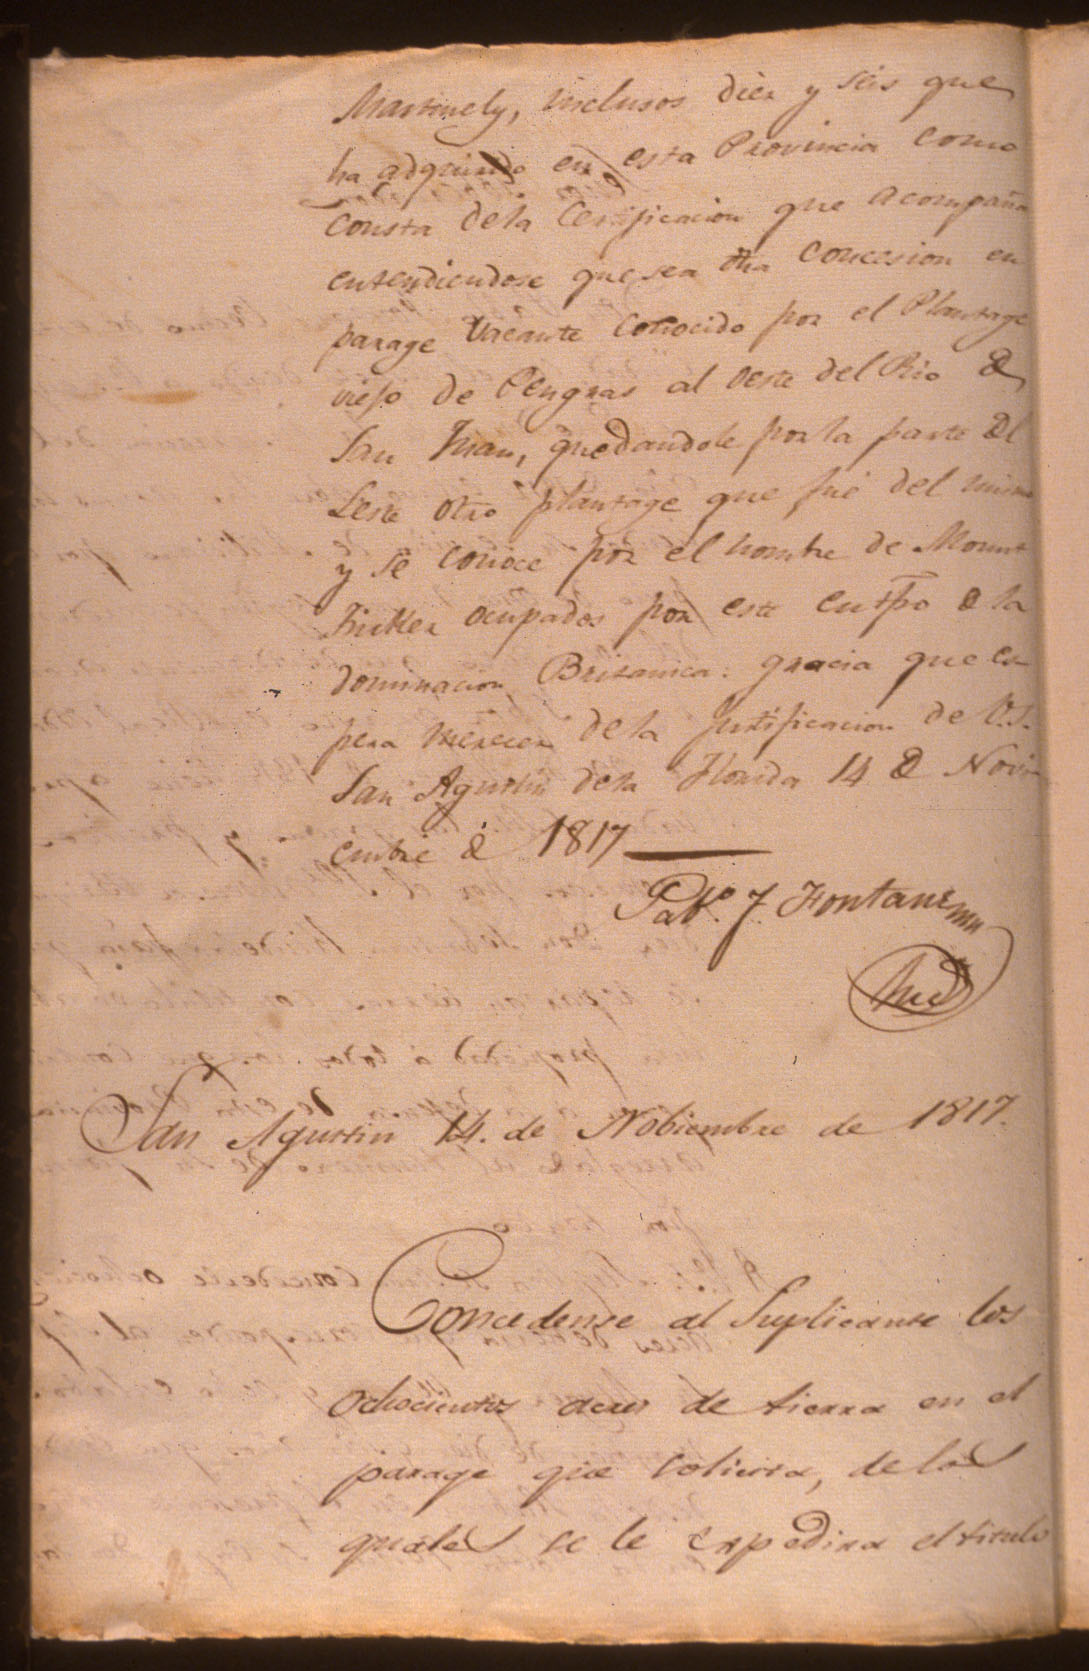 Martinely, inclusos diez y seis que
ha adquirido en esta Provincia como
consta dela Certificacion que acompaña
entendiendose que sea dha concesion en
parage vacante conocido por el Plantage
viejo de Pengras al oeste del Rio de
San Juan, quedandole por la parte del
Leste otro plantage que fué del mismo
y se conoce por el nombre de Mount
ocupados por este en tpo de la
dominacion Britanica: gracia que es-
pera merecer de la justificacion de V.S.
San Agustin dela Florida 14 de Novi-
embre de 1817
Pablo F Fontane
San Agustin 14. de Nobiembre de 1817.
Concedense al Suplicante los
ochocientos acres de tierra en el
parage que solicita, de los
quales se le expedira el titulo